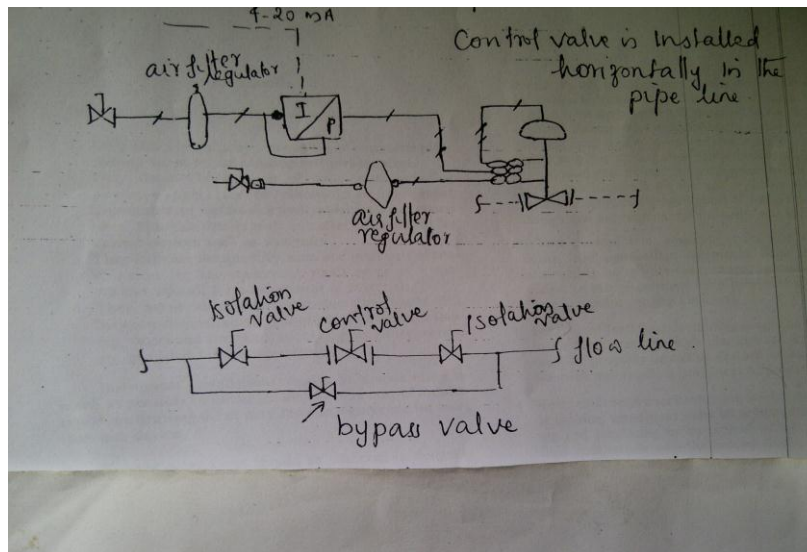 4-20 mA
Control valve is Installed
horizontally in the
pipe line
air filter
regulator
I
P
air filter
regulator
Isolation
valve
control
valve
Isolation
valve
flow line
bypass valve